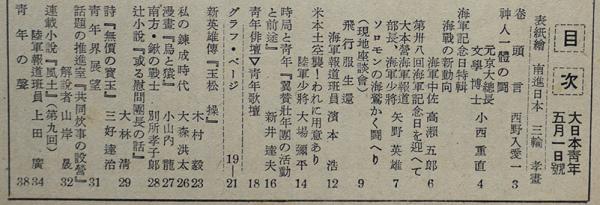 目次
大日本青年
五月一日號
表紙繪 南進日本 三輪孝畫
卷頭言 西野入愛一 3
神人一體の鬪
元京大總長
文學博士 小西重直 4
海軍記念日特輯
海戰の新動向
海軍中佐 高瀬五郎 6
第卅八回海軍記念日を迎へて
大本營海軍報道
部長・海軍少將 矢野英雄 7
ソロモンの海鷲かく鬪へり
(現地座談會) 9
飛行服生還
海軍報道班員 濱本浩 12
米本土空襲!われに用意あり
陸軍少將 大場彌平 14
時局と青年『翼賛壯年團の活動
と前途』 新井達夫 16
青年俳壇▽青年歌壇 18
グラフ・ページ 19—21
新英雄傳『玉松操』
木村毅 23
私の錬成時代 大森洪太 26
漫畫『鳥と猿』 小山内龍 27
南方・鍬の戰士 別所孝二郎 28
辻小說『或る慰問團長の話』
大林清 29
詩『無價の寶玉』 三好達治 31
青年界展望 31
話題の推進室『共同炊事の設營』
解說者 山岸晟 32
連載小說『風土』(第九回)
陸軍報道班員 上田廣 34
青年の聲 38